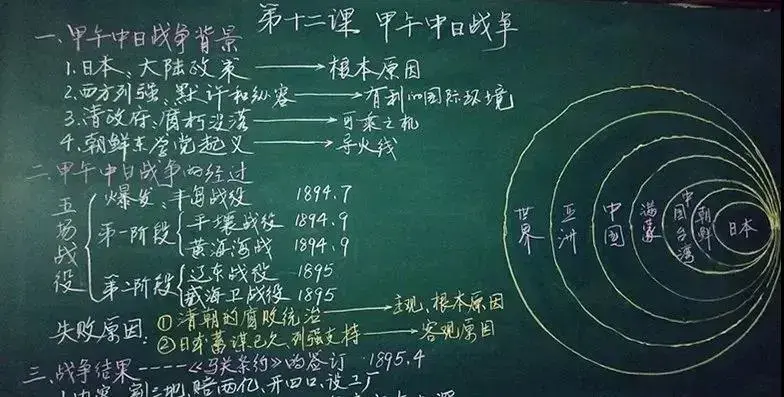 第十二课 甲午中日战争
一、甲午中日战争背景
1.日本、大陆政策 → 根本原因
2.西方列强、默许和纵容 → 有利的国际环境
3.清政府、腐朽没落 → 可乘之机
4.朝鲜东学党起义 → 导火线
二、甲午中日战争的经过
五场战役
爆发:丰岛战役 1894.7
第一阶段
平壤战役 1894.9
黄海海战 1894.9
第二阶段
辽东战役 1895
威海卫战役 1895
失败原因:
①清朝的腐败统治 → 主观、根本原因
②日本蓄谋已久 列强支持 → 客观原因
三、战争结果----《马关条约》的签订 1895.4
割三地,赔两亿,开四口,设工厂
世界
亚洲
中国
满蒙
中国台湾
朝鲜
日本